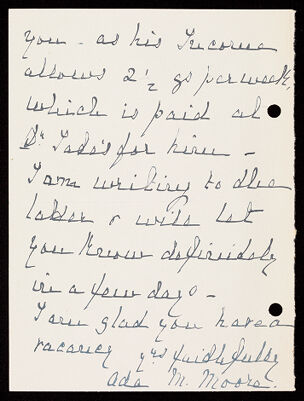 you - as his Income
allows 2½ gs per week,
which is paid at
Dr Tods's for him -
I am writing to the
latter & will let
you know definitely
in a few days -
I am glad you have a
vacancy yrs faithfully
Ada M. Moore.